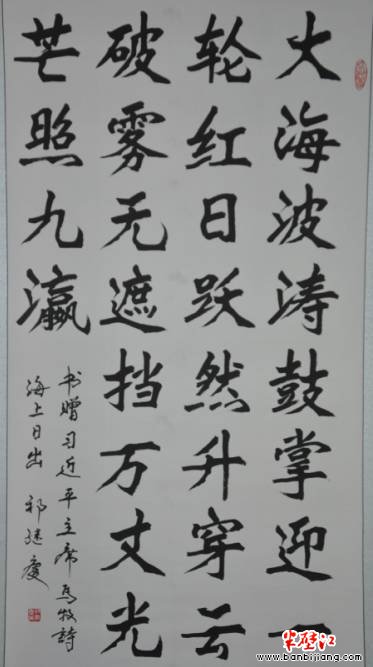 大海波涛鼓掌迎一
轮红日跃然升穿云
破雾无遮挡万丈光
芒照九瀛
书赠习近平主席马牧诗
海上日出 祁继庆
半壁江
www.banbijiang.com